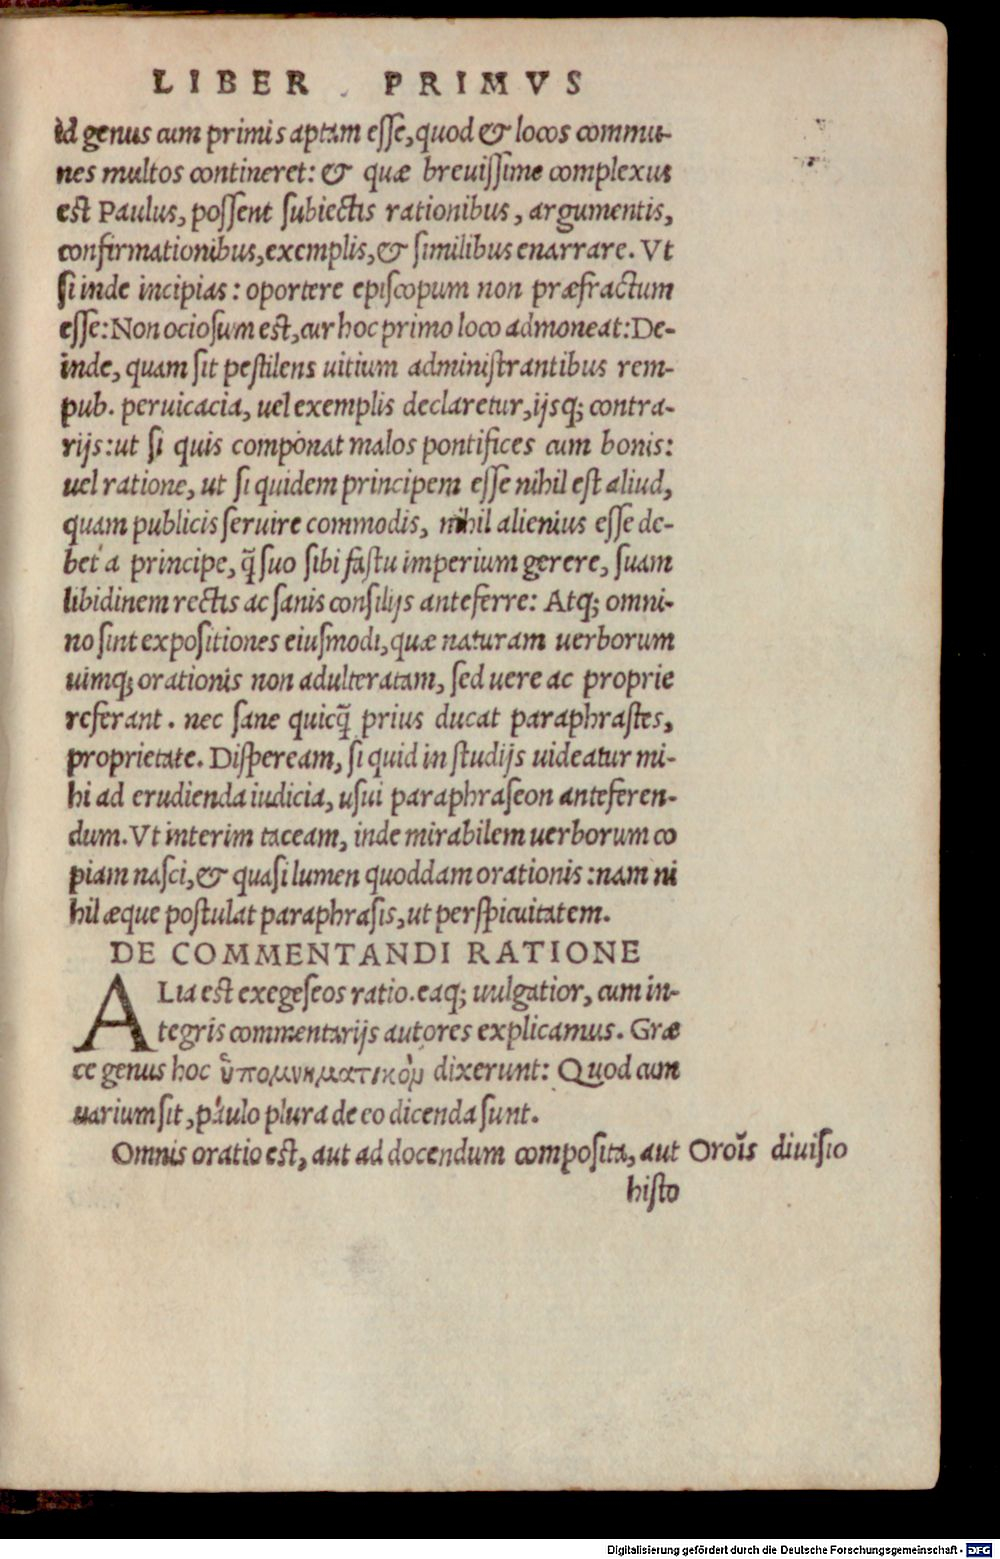 LIBER PRIMVS
id genus cum primis aptam esse, quod & locos commu-
nes multos contineret: & quæ breuissime complexus
est Paulus, possent subiectis rationibus, argumentis,
confirmationibus, exemplis, & similibus enarrare. Vt
si inde incipias: oportere episcopum non præfractum
esse: Non ociosum est, cur hoc primo loco admoneat: De-
inde, quam sit pestilens uitium administrantibus rem-
pub. peruicacia, uel exemplis declaretur, ijsq; contra-
rijs: ut si quis componat malos pontifices cum bonis:
uel ratione, ut si quidem principem esse nihil est aliud,
quam publicis seruire commodis, nihil alienius esse de-
bet a principe, q̃ suo sibi fastu imperium gerere, suam
libidinem rectis ac sanis consilijs anteferre: Atq; omni-
no sint expositiones eiusmodi, quæ naturam uerborum
uimq; orationis non adulteratam, sed uere ac proprie
referant. nec sane quicq̃ prius ducat paraphrastes,
proprietate. Dispeream, si quid in studijs uideatur mi-
hi ad erudienda iudicia, usui paraphraseon anteferen-
dum. Vt interim taceam, inde mirabilem uerborum co
piam nasci, & quasi lumen quoddam orationis: nam ni
hil æque postulat paraphrasis, ut perspicuitatem.
DE COMMENTANDI RATIONE
ALia est exegeseos ratio. eaq; uulgatior, cum in-
tegris commentarijs autores explicamus. Græ
ce genus hoc ὑπομνηματικὸν dixerunt: Quod cum
uarium sit, paulo plura de eo dicenda sunt.
Omnis oratio est, aut ad docendum composita, aut Oroĩs diuisio
histo
Digitalisierung gefördert durch die Deutsche Forschungsgemeinschaft - DFG